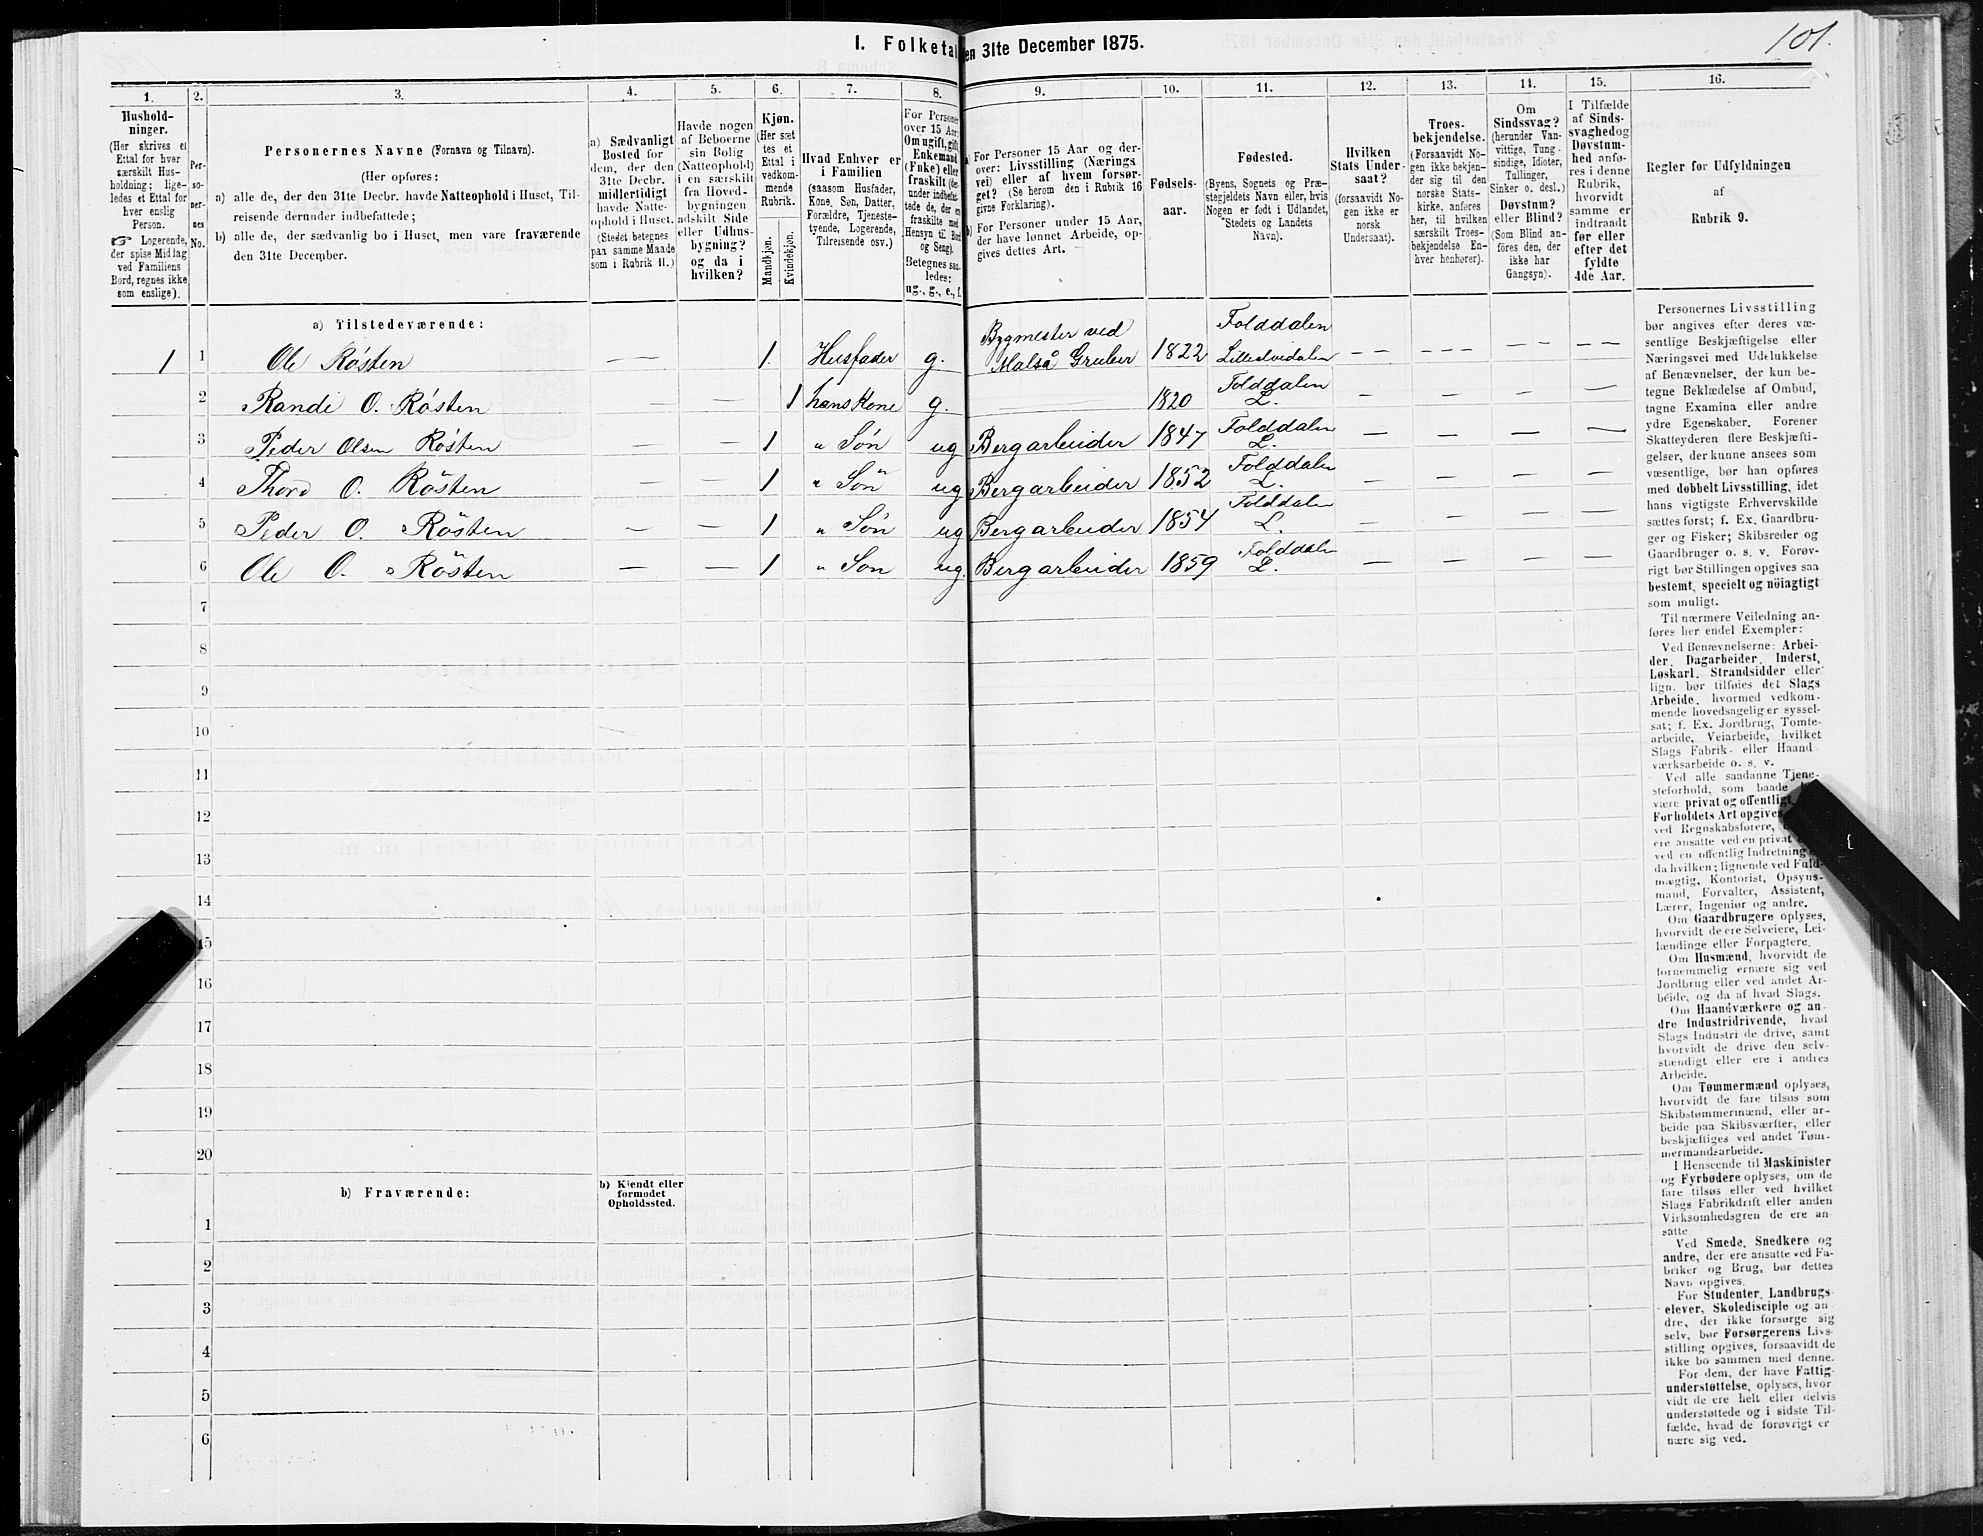 101.
1. Folketal
en 31te December 1875.
1. 2. 3. 4. 5. 6. 7. 8. 9. 10. 11. 12. 13. 14. 15. 16.
Hushold-
ninger.
(Her skrives et
Ettal for hver
særskilt Hus-
holdning; lige-
ledes et Ettal for
hver enslig
Person.
☞ Logerende,
der spise Middag
ved Familiens
Bord, regnes ikke
som enslige).
Per-
so-
ner-
nes
No.
Personernes Navne (Fornavn og Tilnavn).
(Her opføres:
a) alle de, der den 31te Decbr. havde Natteophold i Huset, Til-
reisende derunder indbefattede;
b) alle de, der sædvanlig bo i Huset, men vare fraværende
den 31te December.
a) Sædvanligt
Bosted for
dem, der den
31te Decbr.
midlertidigt
havde Natte-
ophold i Huset.
(Stedet betegnes
paa samme Maade
som i Rubrik 11.)
Havde nogen
af Beboerne
sin Bolig
(Natteophold)
i en særskilt
fra Hoved-
bygningen
adskilt Side
eller Udhus-
bygning?
og da i
hvilken?
Kjøn.
(Her sæt
tes et
Ettal i
vedkom-
mende
Rubrik.
Mandkjøn.
Kvindekjøn.
Hvad Enhver er
i Familien
(saasom Husfader,
Kone, Søn, Datter,
Forældre, Tjeneste-
tyende, Logerende,
Tilreisende osv.)
For Personer
over 15 Aar:
Om ugift, gift,
Enkemand
(Enke) eller
fraskilt (der-
under indbefat-
tede de, der ere
fraskilte med
Hensyn til Bord
og Seng).
Betegnes saa-
ledes:
ug., g., e., f.
a) For Personer 15 Aar og der-
over: Livsstilling (Nærings
vei) eller af hvem forsør-
get? (Se herom den i Rubrik 16
givne Forklaring).
b) For Personer under 15 Aar,
der have lønnet Arbeide, op-
gives dettes Art.
Fødsels-
aar.
Fødested.
(Byens, Sognets og Præ-
stegjeldets Navn eller, hvis
Nogen er født i Udlandet,
Stedets og Landets
Navn).
Hvilken
Stats Under-
saat?
(forsaavidt No-
gen ikke er
norsk
Undersaat).
Troes-
bekjendelse.
(Forsaavidt No-
gen ikke bekjen-
der sig til den
norske Stats-
kirke, anføres
her, til hvilken
særskilt Troes-
bekjendelse En-
hver henhører).
Om
Sindssvag?
(herunder Van-
vittige, Tung-
sindige, Idioter,
Tullinger,
Sinker o. desl.)
Døvstum?
eller Blind?
(Som Blind an-
føres den, der
ikke har
Gangsyn).
I Tilfælde
af Sinds-
svaghedog
Døvstum-
hed anfø-
res i denne
Rubrik,
hvorvidt
samme er
indtraadt
før eller
efter det
fyldte
4de Aar.
Regler for Udfyldningen
af
Rubrik 9.
a) Tilstedeværende:
1 1 Ole Røsten — — 1 Husfader g. Bygmester ved Malså Gruber 1822 Folddalen Lilleelvedalen — — — — — — —
2 Randi O. Røsten — — 1 hans Kone g. — 1820 Folddalen L. — — — —
3 Peder Olsen Røsten — — 1 " Søn ug Bergarbeider 1847 Folddalen L. — — — —
4 Thord O. Røsten — — 1 " Søn ug Bergarbeider 1852 Folddalen L. — — — —
5 Peder O. Røsten — — 1 " Søn ug Bergarbeider 1854 Folddalen L. — — — —
6 Ole O. Røsten — — 1 " Søn ug. Bergarbeider 1859 Folddalen L. — — — —
7
8
9
10
11
12
13
14
15
16
17
18
19
20
b) Fraværende:
b) Kjendt eller
formodet
Opholdssted.
1
2
3
4
5
6
Personernes Livsstilling
bør angives efter deres væ-
sentlige Beskjæftigelse eller
Næringsvei med Udelukkelse
af Benævnelser, der kun be-
tegne Beklædelse af Ombud,
tagne Examina eller andre
ydre Egenskaber. Forener
Skatteyderen flere Beskjæfti-
gelser, der kunne ansees som
væsentlige, bør han opføres
med dobbelt Livsstilling, idet
hans vigtigste Erhvervskilde
sættes først; f. Ex. Gaardbru-
ger og Fisker; Skibsreder og
Gaardbruger o. s. v. Forøv-
rigt bør Stillingen opgives saa
bestemt, specielt og nöiagtigt
som muligt.
Til nærmere Veiledning an-
føres her endel Exempler:
Ved Benævnelserne: Arbei-
der, Dagarbeider, Inderst,
Løskarl, Strandsidder eller
lign. bør tilføies det Slags
Arbeide, hvormed vedkom-
mende hovedsagelig er syssel-
sat; f. Ex. Jordbrug, Tomte-
arbeide, Veiarbeide, hvilket
Slags Fabrik- eller Haand
værksarbeide o. s. v.
Ved alle saadanne Tjene-
steforhold, som baade
være privat og offentligt,
Forholdets Art opgives
ved Regnskabsførere,
ere ansatte ved en privat
ved en offentlig Indretning
da hvilken; lignende ved Fuld-
mægtig, Kontorist, Opsyns-
mand, Forvalter, Assistent,
Lærer, Ingeniør og andre.
Om Gaardbrugere oplyses,
hvorvidt de ere Selveiere, Lei-
lændinge eller Forpagtere.
Om Husmænd, hvorvidt de
fornemmelig ernære sig ved
Jordbrug eller ved andet Ar-
béide, og da af hvad Slags.
Om Haandværkere og an-
dre Industridrivende, hvad
Slags Industri de drive, samt
hvorvidt de drive den selv-
stændigt eller ere i andres
Arbeide.
Om Tømmermænd oplyses,
hvorvidt de fare tilsøs som
Skibstømmermænd, eller ar-
beide paa Skibsværfter, eller
beskjæftiges ved andet Tøm-
mermandsarbeide.
I Henseende til Maskinister
og Fyrbødere oplyses, om de
fare tilsøs eller ved hvilket
Slags Fabrikdrift eller anden
Virksomhedsgren de ere an-
satte.
Ved Smede, Snedkere og
andre, der ere ansatte ved Fa-
briker og Brug, bør dettes
Navn opgives.
For Studenter, Landbrugs-
elever, Skoledisciple og an-
dre, der ikke forsørge sig
selv, bør Forsørgerens Livs-
stilling opgives, forsaavidt de
ikke bo sammen med denne.
For dem, der have Fattig-
understøttelse, oplyses, hvor
vidt de ere helt eller delvis
understøttede og i sidste Til-
fælde, hvad de forøvrigt er
nære sig ved.